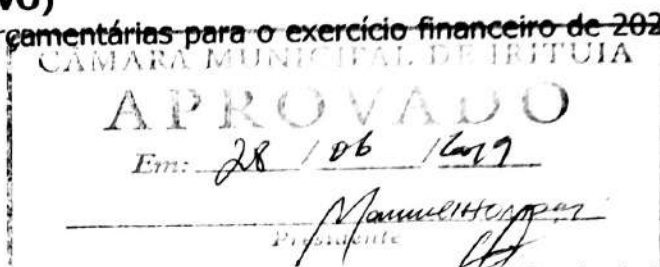 VO)
rçamentárias para o exercício financeiro de 202
CÂMARA MUNICIPAL DE IRITUIA
APROVADO
Em: 28 / 06 / 2019
Presidente